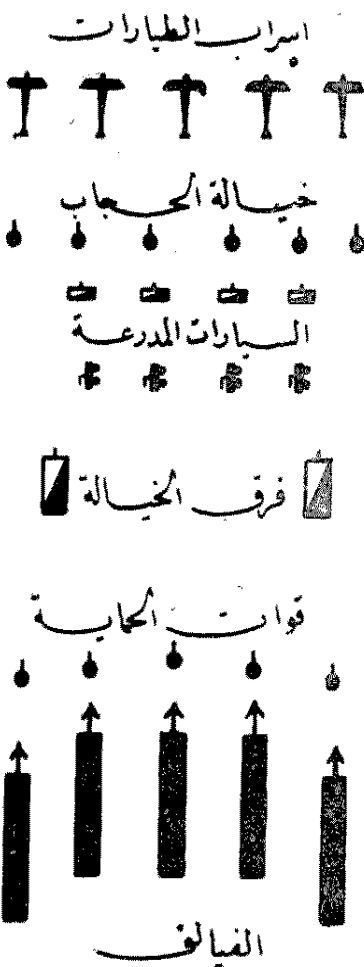 اسراب الطيارات
خيالة الحجاب
السيارات المدرعة
فرق الخيالة
قوات الحماية
الفيالق